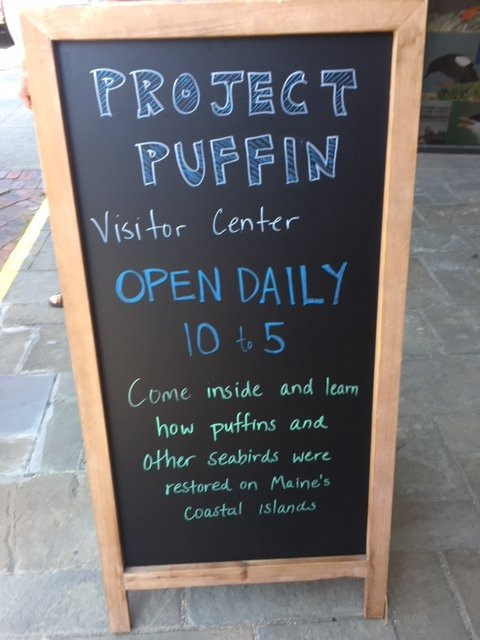 PROJECT
PUFFIN
Visitor Center
OPEN DAILY
10 to 5
Come inside and learn
how puffins and
other seabirds were
restored on Maine's
Coastal islands